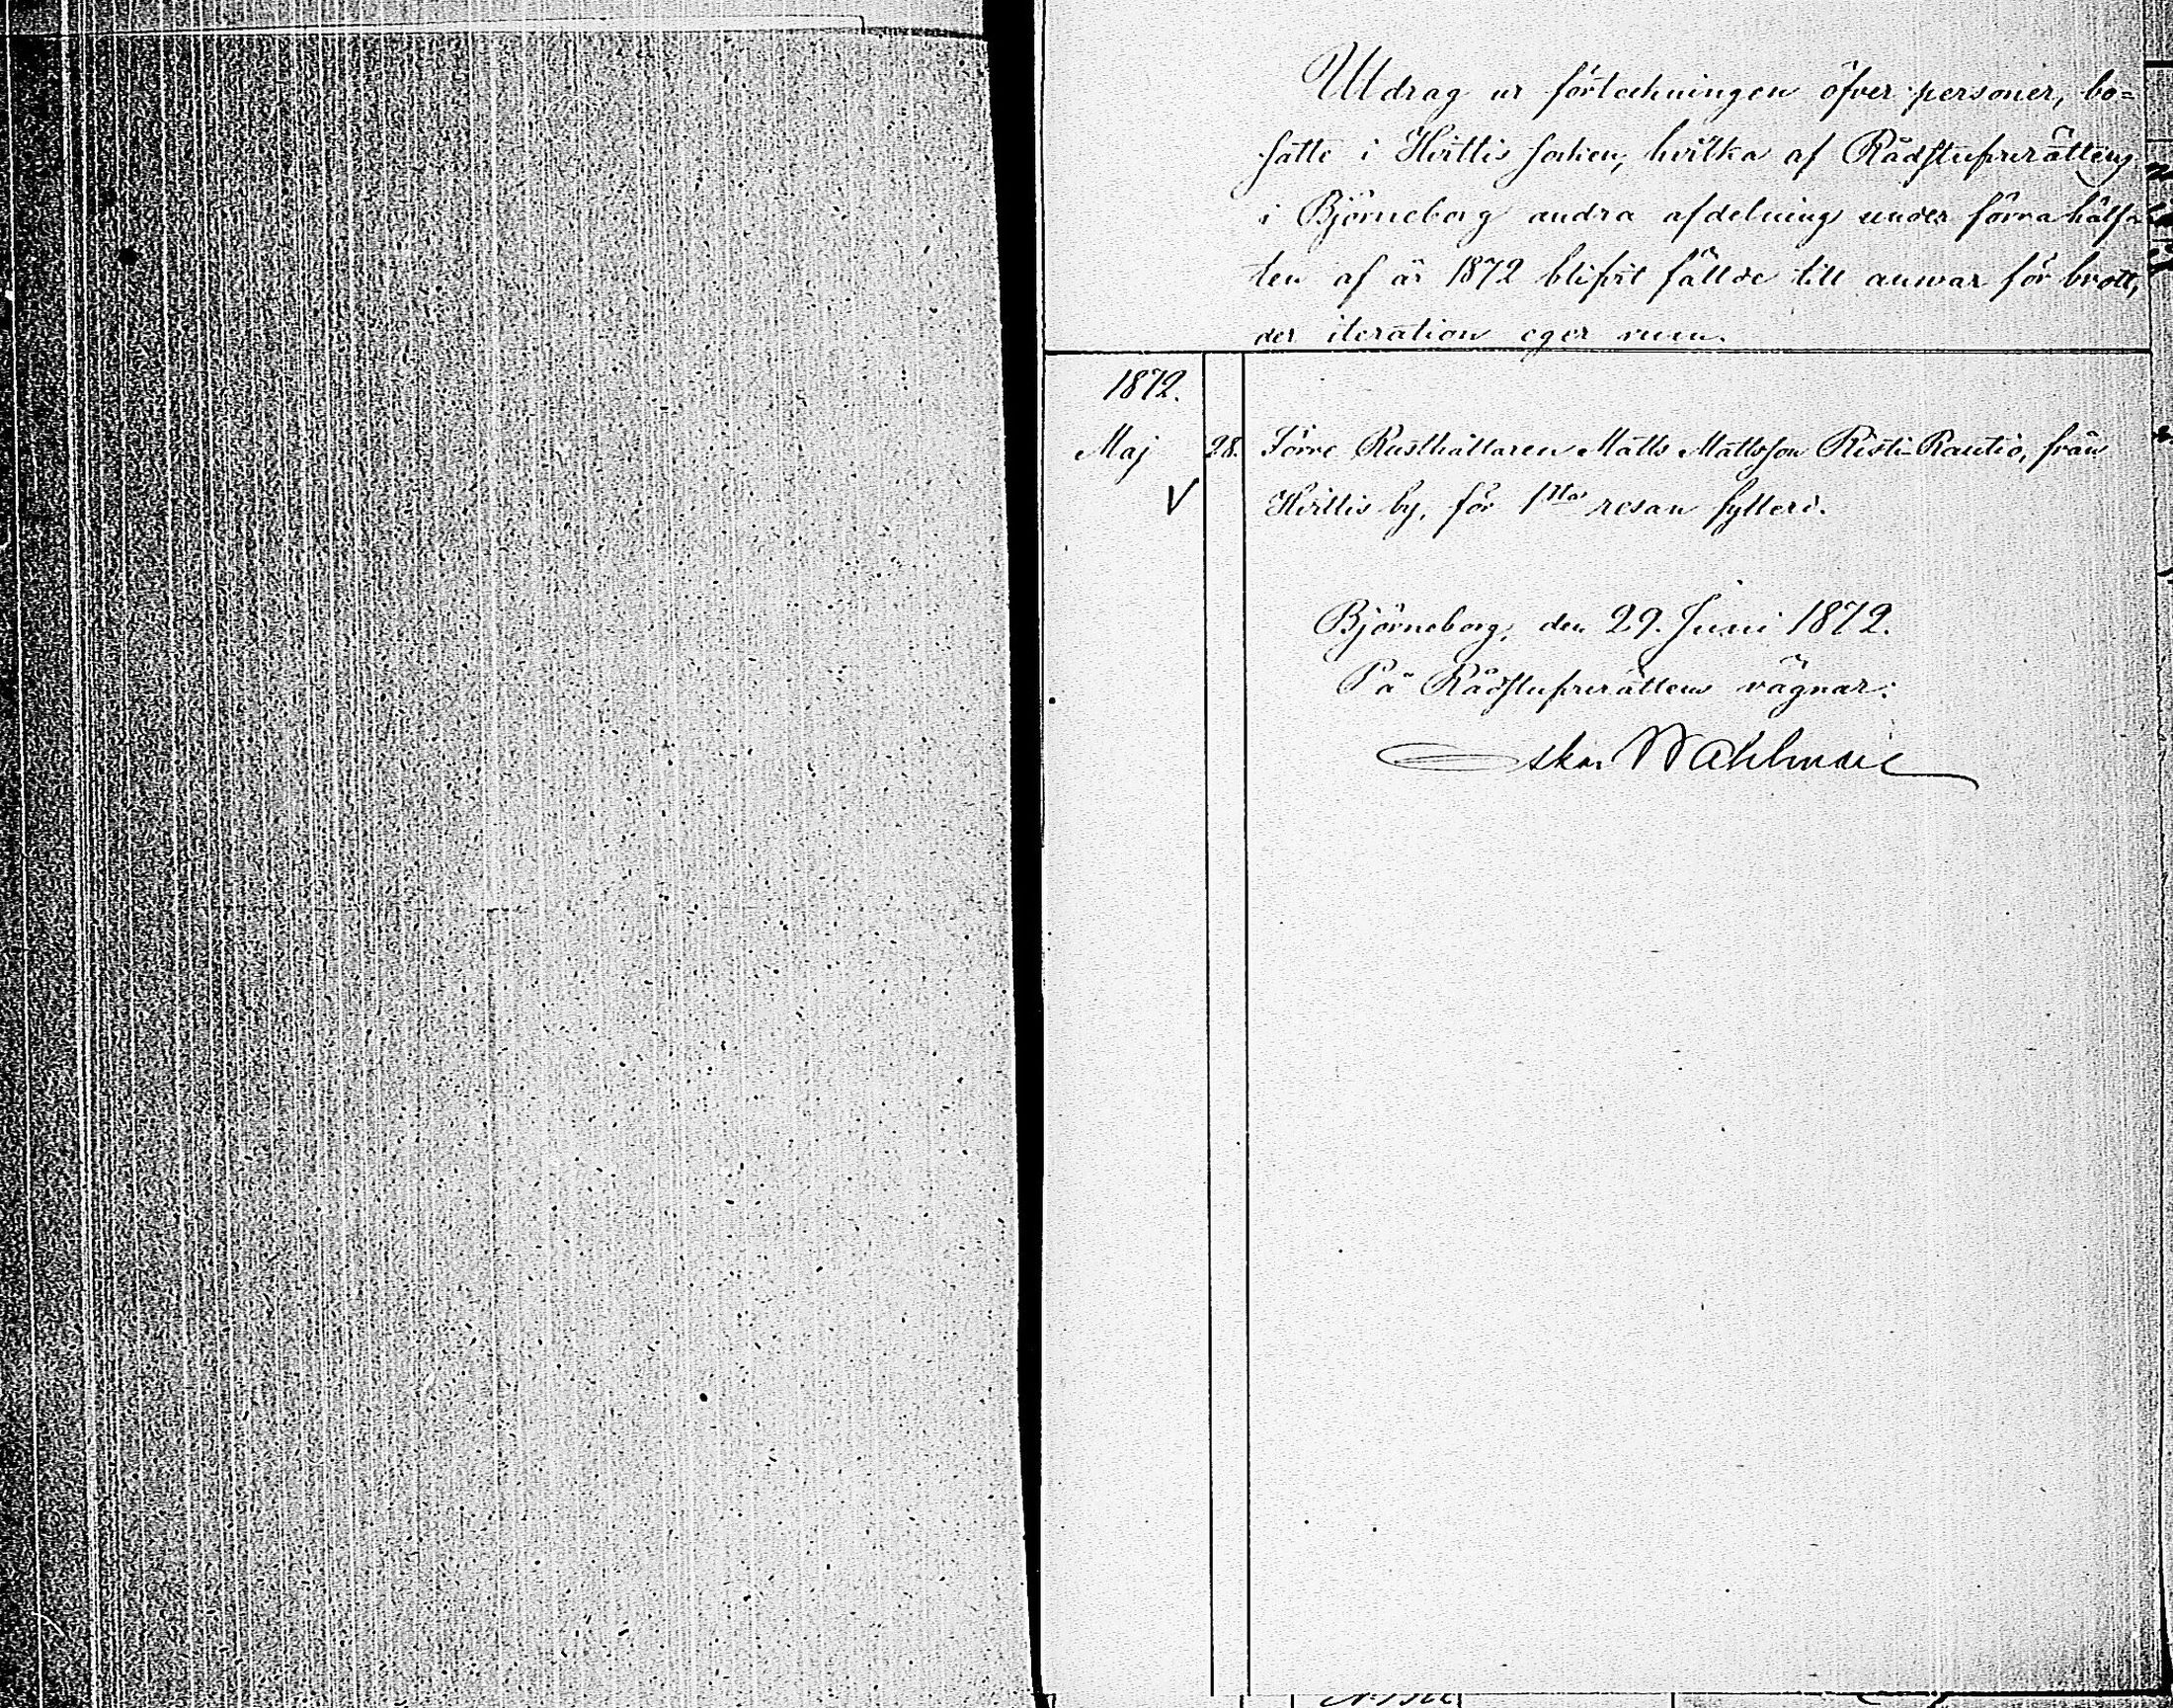 Utdrag ur förteckningen öfver personer, bo=
satte i Hvittis socken, hvilka af Rådstufvurättens
i Björneborg andra afdelning under förra hälf-
ten af år 1872 blifvit fällde till answar för brott,
der iteration eger rum.
1872.
Maj 28. Förre Rusthållaren Matts Mattsson Risti-Rautio, från
V Hvittis by, för 1sta resan fylleri.
Björneborg, den 29. Juni 1872.
På Rådstufvurättens vägnar:
Oskar Wahlman